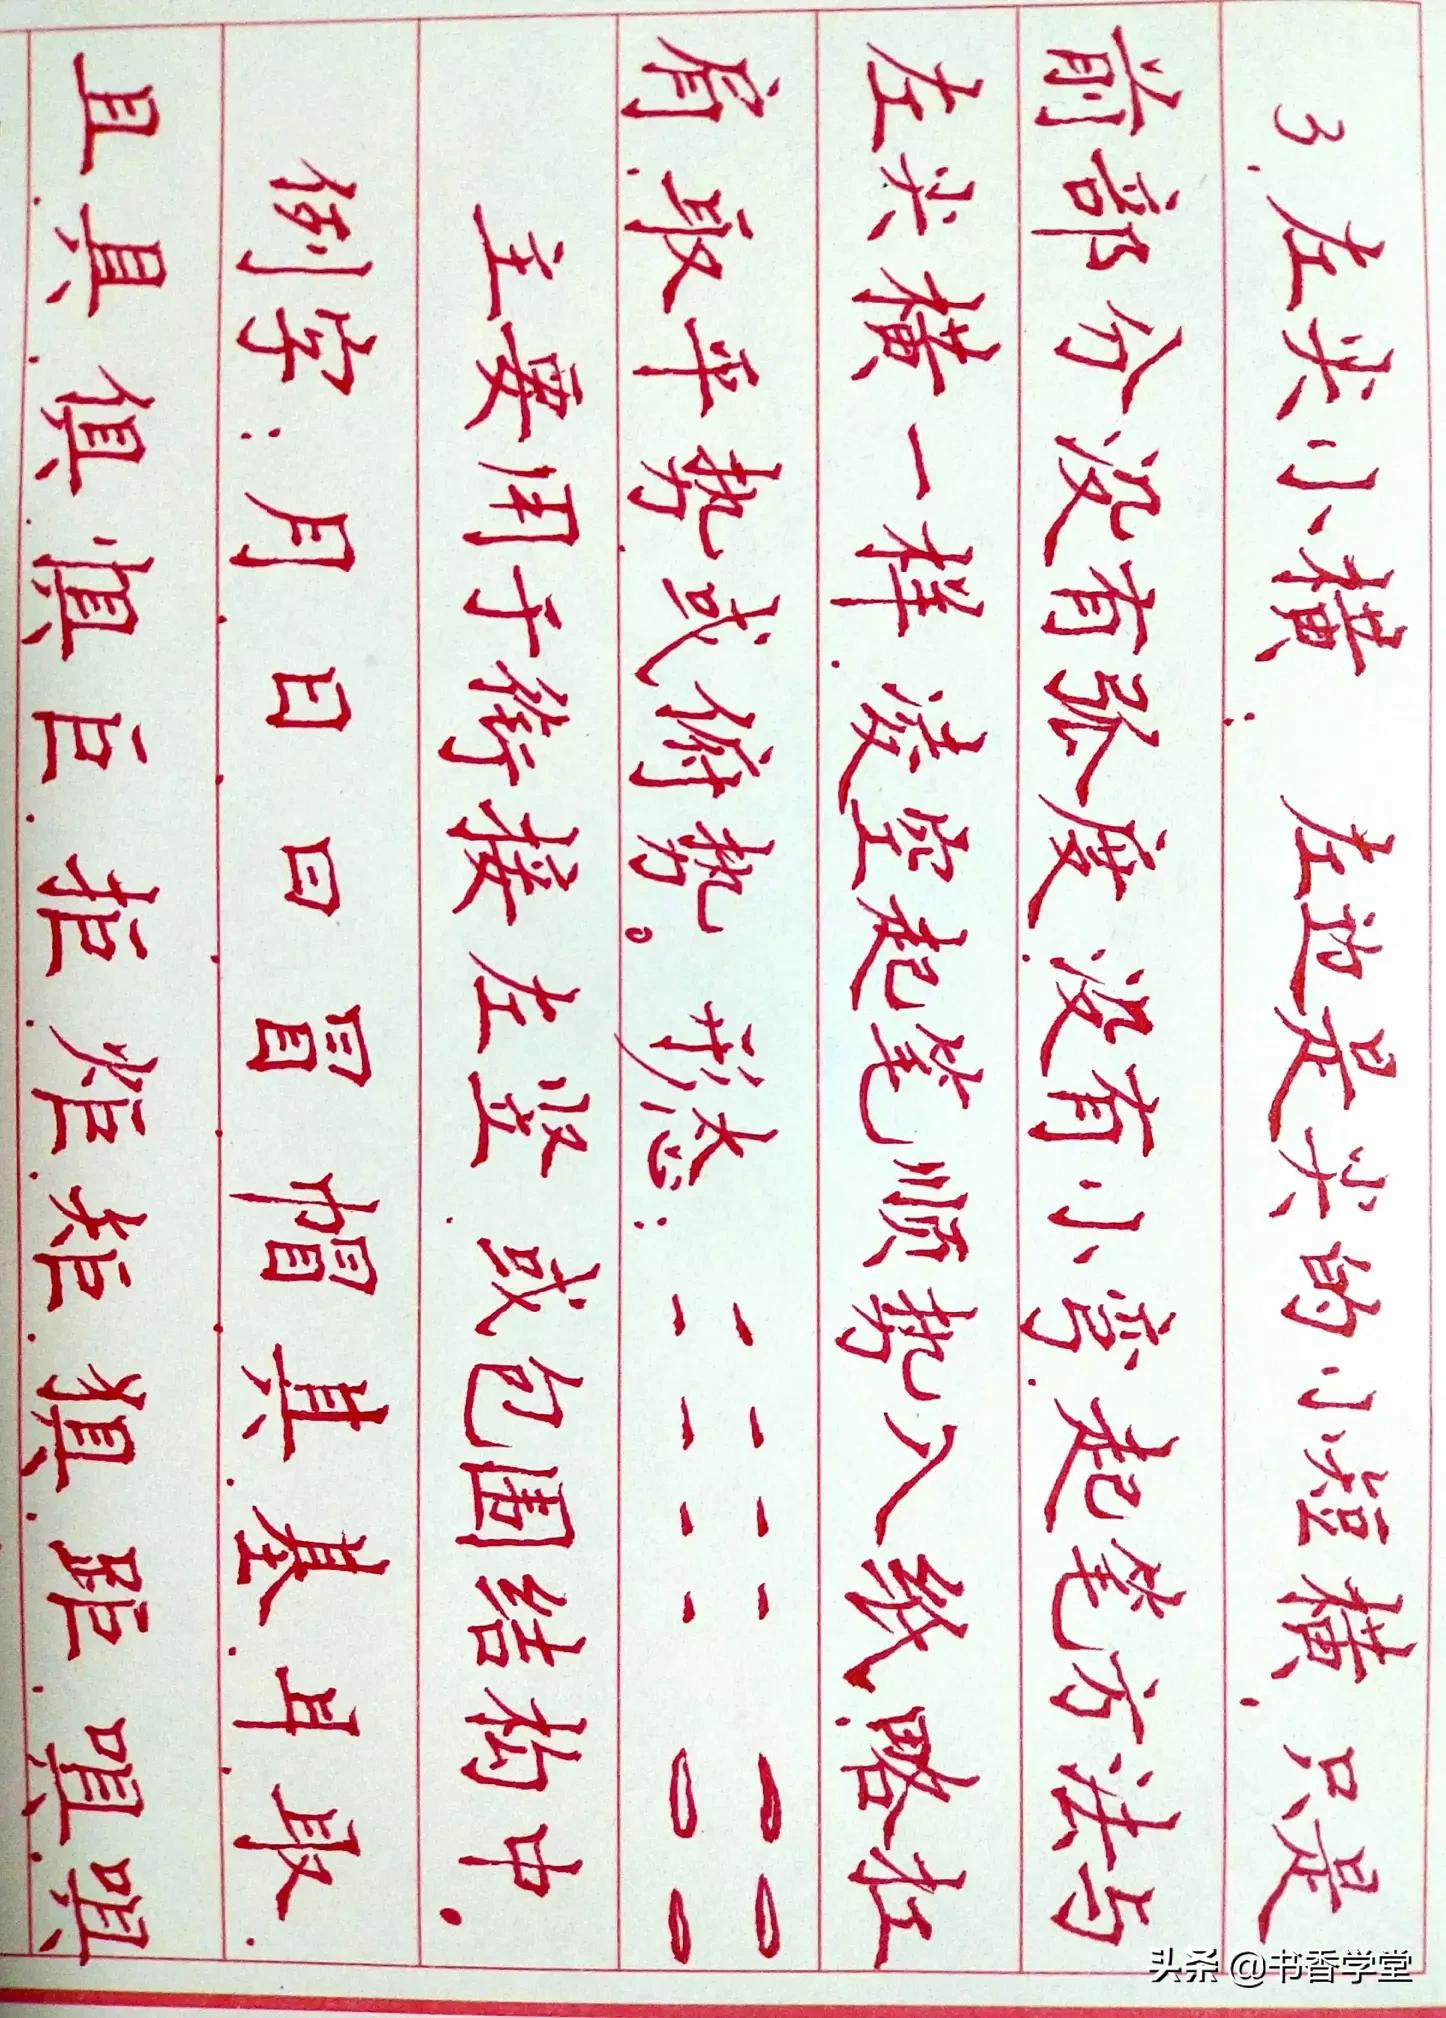 3.左尖小横：左边是尖的小短横，只是
前部分没有弧度，没有小弯，起笔方法与
左尖横一样，凌空起笔顺势入纸，略扛
肩，取平势，或俯势。形态：
主要用于衔接左竖，或包围结构中。
例字：月，日，曰，冒，帽，其，基，耳，取，
且，具，俱，惧，巨，拒，炬，矩，距，
头条 @书香学堂